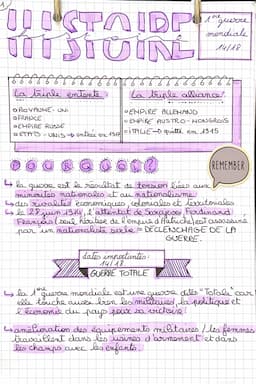 HISTOIRE
histoire
1ère guerre
mondiale
14/18
La triple entente:
La triple alliance:
ROYAUME-UNI
FRANCE
EMPIRE RUSSE
ETATS-UNIS → entrée en 1917
EMPIRE ALLEMAND
EMPIRE AUSTRO-HONGROIS
ITALIE → quitte en 1915
POURQUOI?
REMEMBER
↳ la guerre est le résultat de tension liées aux
minorités nationales et au nationalisme
↳ des rivalités économiques, coloniales et territoriales
↳ le 28 juin 1914, l'attentat de Sarajevo Ferdinand
François (seul héritier de l'empire d'Autriche) est assassiné
par un nationaliste serbe = DECLENCHAGE DE LA
GUERRE.
dates importantes:
14/18
GUERRE TOTALE
↳ la 1ère guerre mondiale est une guerre dite "Totale" car
elle touche aussi bien les militaires, la politique et
l'économie du pays pour sa victoire!
↳ amélioration des équipements militaires / les femmes
travaillent dans les usines d'armement et dans
les champs avec les enfants.